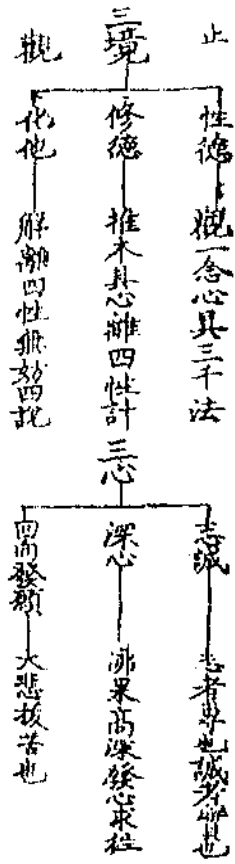 止
三境
觀
性德 觀一念心具三千法
修德 推本具心離四性計
化他 解離四性無妨四說
三心
志誠 志者專也誠者實也
深心 佛果高深發心求往
回向發願 大悲拔苦也